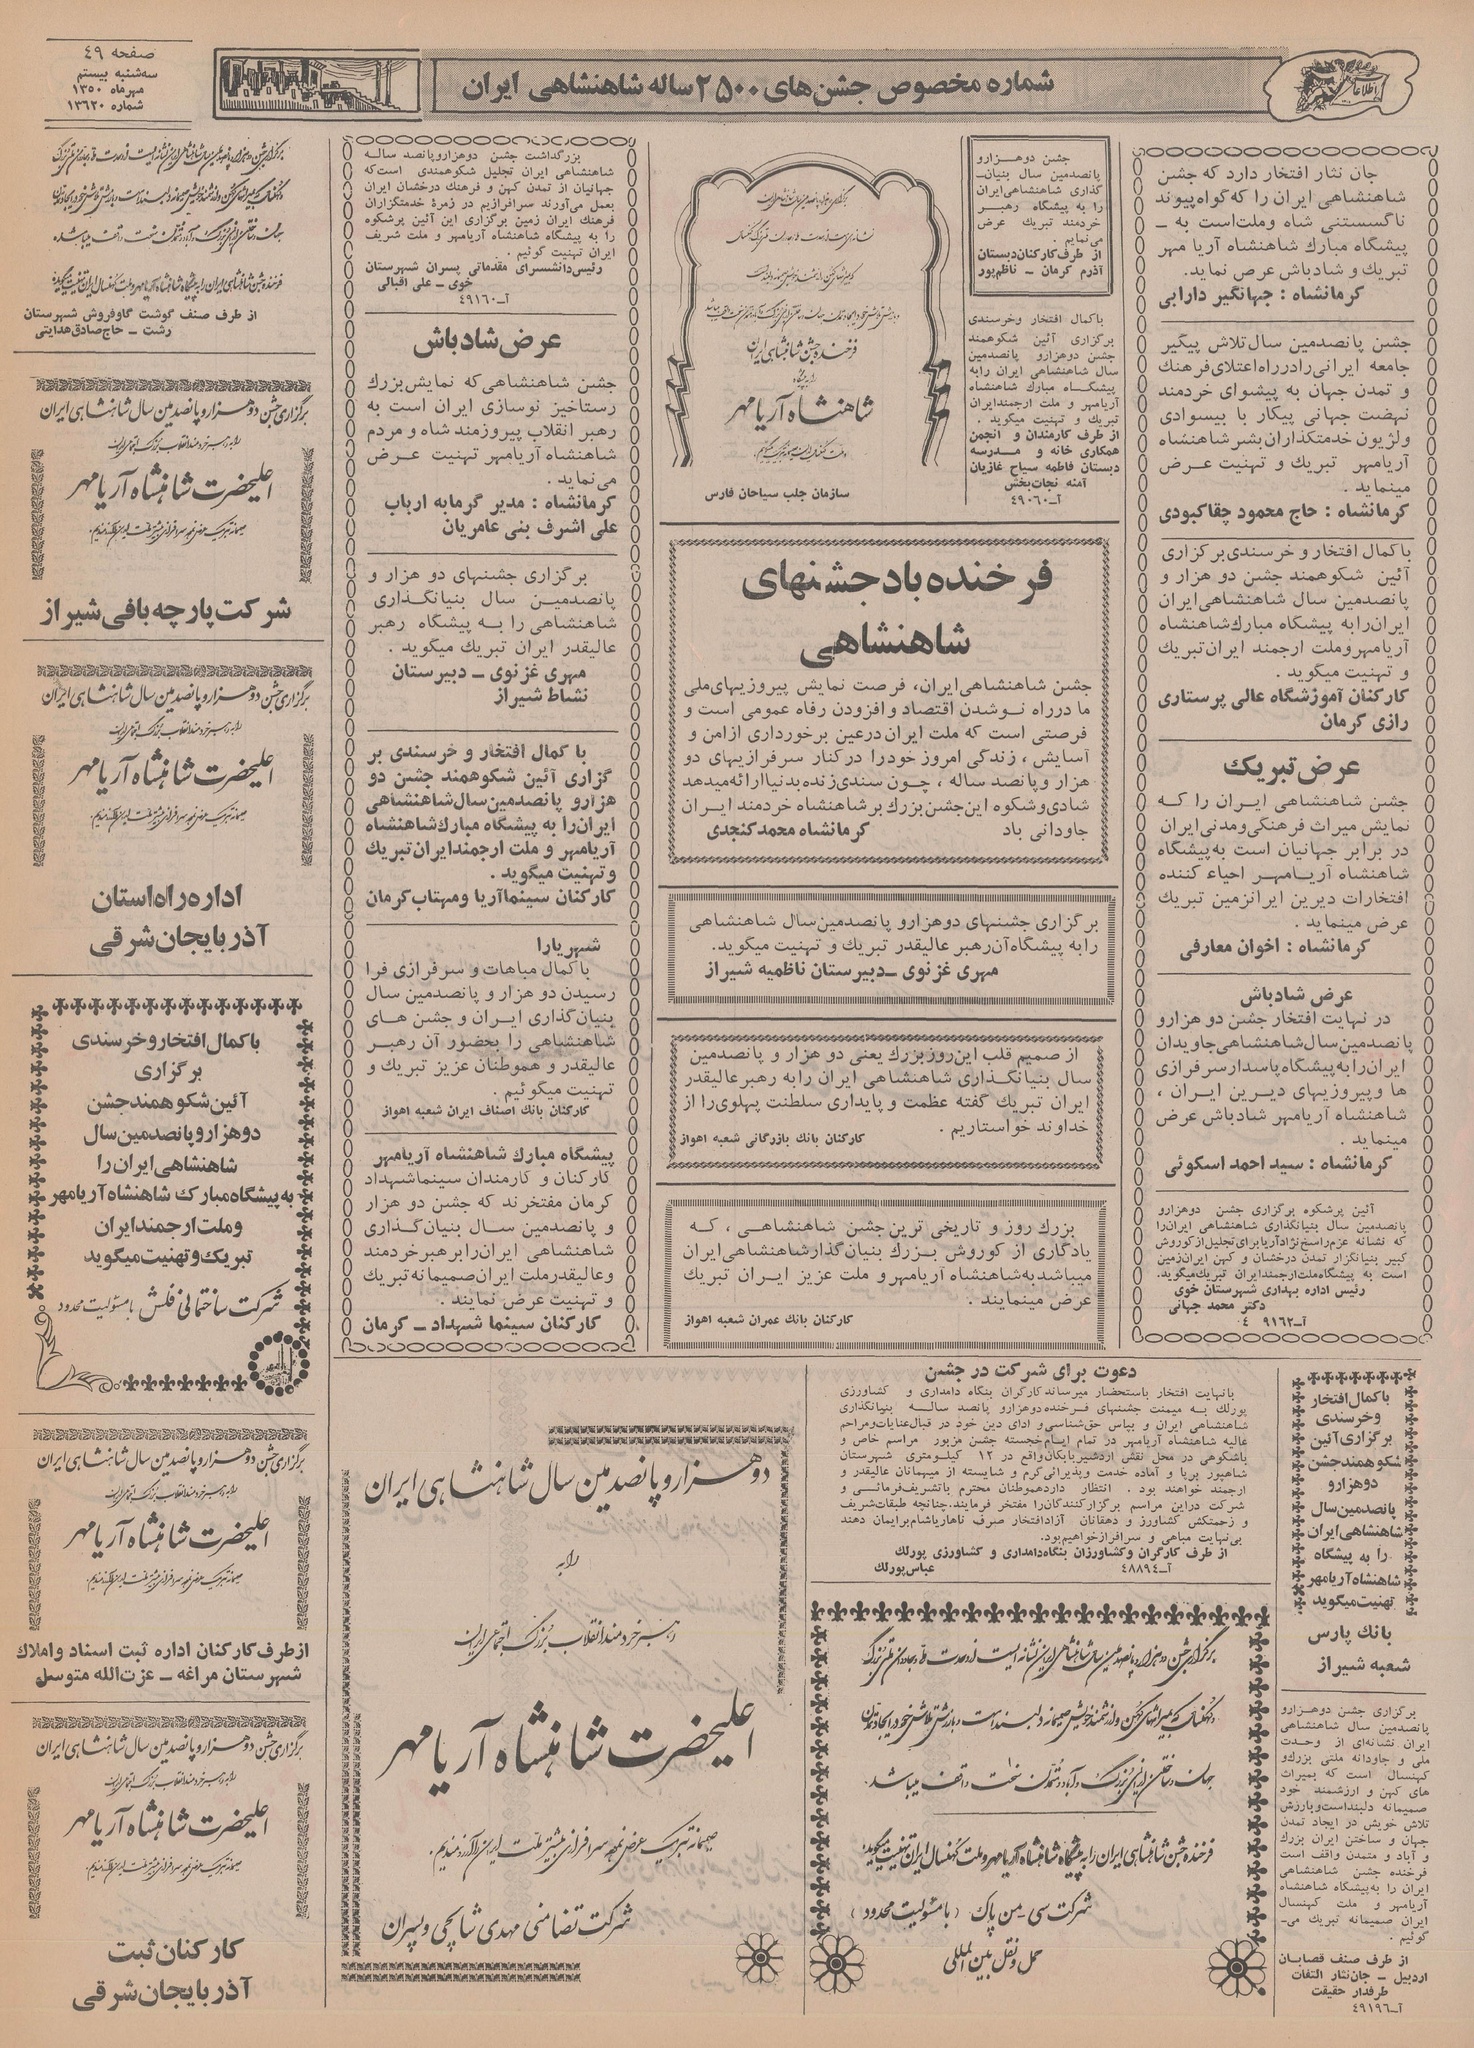 صفحه ٤٩
سه‌شنبه بیستم
مهرماه ١٣٥٠
شماره ١٣٦٢٠
شماره مخصوص جشن‌های ٢٥٠٠ ساله شاهنشاهی ایران
اطلاعات
جان نثار افتخار دارد که جشن
شاهنشاهی ایران را که گواه پیوند
ناگسستنی شاه وملت است به ـ
پیشگاه مبارک شاهنشاه آریا مهر
تبریک و شادباش عرض نماید.
کرمانشاه : جهانگیر دارابی
جشن پانصدمین سال تلاش پیگیر
جامعه ایرانی رادرراه اعتلای فرهنگ
و تمدن جهان به پیشوای خردمند
نهضت جهانی پیکار با بیسوادی
ولژیون خدمتگذاران بشر شاهنشاه
آریامهر تبریک و تهنیت عرض
مینماید .
کرمانشاه : حاج محمود چقاکبودی
باکمال افتخار و خرسندی برگزاری
آئین شکوهمند جشن دو هزار و
پانصدمین سال شاهنشاهی ایران
ایران رابه پیشگاه مبارک شاهنشاه
آریامهر وملت ارجمند ایران تبریک
و تهنیت میگوید .
کارکنان آموزشگاه عالی پرستاری
رازی کرمان
عرض تبریک
جشن شاهنشاهی ایران را که
نمایش میراث فرهنگی ومدنی ایران
در برابر جهانیان است به پیشگاه
شاهنشاه آریامهر احیاء کننده
افتخارات دیرین ایرانزمین تبریک
عرض مینماید .
کرمانشاه : اخوان معارفی
عرض شادباش
در نهایت افتخار جشن دو هزارو
پانصدمین سال شاهنشاهی جاویدان
ایران رابه پیشگاه پاسدار سرفرازی
ها وپیروزیهای دیرین ایران ،
شاهنشاه آریامهر شادباش عرض
مینماید .
کرمانشاه : سید احمد اسکوئی
آئین پرشکوه برگزاری جشن دوهزارو
پانصدمین سال بنیانگذاری شاهنشاهی ایران را
که نشانه عزم راسخ نژاد آریا برای تجلیل از کوروش
کبیر بنیانگزار تمدن درخشان و کهن ایران زمین
است به پیشگاه ملت ارجمند ایران تبریک میگوید.
رئیس اداره بهداری شهرستان خوی
دکتر محمد جهانی
آ‌ـ٩١٦٢ ٤
جشن دوهزارو
پانصدمین سال بنیان‌ـ
گذاری شاهنشاهی ایران
را به پیشگاه رهبر
خردمند تبریک عرض
می‌نمایم .
از طرف کارکنان دبستان
آذرم کرمان ـ ناظم‌پور
باکمال افتخار وخرسندی
برگزاری آئین شکوهمند
جشن دوهزارو پانصدمین
سال شاهنشاهی ایران رابه
پیشگاه مبارک شاهنشاه
آریامهر و ملت ارجمند ایران
تبریک و تهنیت میگوید .
از طرف کارمندان و انجمن
همکاری خانه و مدرسه
دبستان فاطمه سیاح غازیان
آمنه نجات‌بخش
آ‌ـ٤٩٠٦٠
فرخنده جشن شاهنشاهی ایران
را به پیشگاه
شاهنشاه آریامهر
سازمان جلب سیاحان فارس
فرخنده باد جشنهای
شاهنشاهی
جشن شاهنشاهی ایران، فرصت نمایش پیروزیهای ملی
ما درراه نوشدن اقتصاد و افزودن رفاه عمومی است و
فرصتی است که ملت ایران درعین برخورداری از امن و
آسایش ، زندگی امروز خودرا درکنار سرفرازیهای دو
هزار و پانصد ساله ، چون سندی زنده بدنیا ارائه میدهد
شادی وشکوه این جشن بزرگ بر شاهنشاه خردمند ایران
جاودانی باد کرمانشاه محمد کنجدی
برگزاری جشنهای دوهزارو پانصدمین سال شاهنشاهی
رابه پیشگاه آن رهبر عالیقدر تبریک و تهنیت میگوید.
مهری غزنوی ـ دبیرستان ناظمیه شیراز
از صمیم قلب این روز بزرگ یعنی دو هزار و پانصدمین
سال بنیانگذاری شاهنشاهی ایران رابه رهبر عالیقدر
ایران تبریک گفته عظمت و پایداری سلطنت پهلوی را از
خداوند خواستاریم .
کارکنان بانک بازرگانی شعبه اهواز
بزرگ روز و تاریخی ترین جشن شاهنشاهی ، که
یادگاری از کوروش بزرگ بنیان گذار شاهنشاهی ایران
میباشد به شاهنشاه آریامهر و ملت عزیز ایران تبریک
عرض مینمایند .
کارکنان بانک عمران شعبه اهواز
بزرگداشت جشن دوهزارو پانصد ساله
شاهنشاهی ایران تجلیل شکوهمندی است که
جهانیان از تمدن کهن و فرهنگ درخشان ایران
بعمل می‌آورند سرافرازیم در زمره خدمتگزاران
فرهنگ ایران زمین برگزاری این آئین پرشکوه
را به پیشگاه شاهنشاه آریامهر و ملت شریف
ایران تهنیت گوئیم .
رئیس دانشسرای مقدماتی پسران شهرستان
خوی ـ علی اقبالی
آ‌ـ٤٩١٦٠
عرض شادباش
جشن شاهنشاهی که نمایش بزرگ
رستاخیز نوسازی ایران است به
رهبر انقلاب پیروزمند شاه و مردم
شاهنشاه آریامهر تهنیت عرض
می‌نماید .
کرمانشاه : مدیر گرمابه ارباب
علی اشرف بنی عامریان
برگزاری جشنهای دو هزار و
پانصدمین سال بنیانگذاری
شاهنشاهی را به پیشگاه رهبر
عالیقدر ایران تبریک میگوید .
مهری غزنوی ـ دبیرستان
نشاط شیراز
با کمال افتخار و خرسندی بر
گزاری آئین شکوهمند جشن دو
هزارو پانصدمین سال شاهنشاهی
ایران را به پیشگاه مبارک شاهنشاه
آریامهر و ملت ارجمند ایران تبریک
و تهنیت میگوید .
کارکنان سینما آریا ومهتاب کرمان
شهریارا
باکمال مباهات و سرفرازی فرا
رسیدن دو هزار و پانصدمین سال
بنیان‌گذاری ایران و جشن های
شاهنشاهی را بحضور آن رهبر
عالیقدر و هموطنان عزیز تبریک و
تهنیت میگوئیم .
کارکنان بانک اصناف ایران شعبه اهواز
پیشگاه مبارک شاهنشاه آریامهر
کارکنان و کارمندان سینما شهداد
کرمان مفتخرند که جشن دو هزار
و پانصدمین سال بنیان‌گذاری
شاهنشاهی ایران رابرهبر خردمند
وعالیقدر ملت ایران صمیمانه تبریک
و تهنیت عرض نمایند .
کارکنان سینما شهداد ـ کرمان
برگزاری جشن دو هزار و پانصدمین سال شاهنشاهی ایران نشانه ایست از وحدت ملی و جاودانه ملتی بزرگ
فرخنده جشن شاهنشاهی ایران را به پیشگاه شاهنشاه آریامهر و ملت کهنسال ایران تهنیت میگوید
از طرف صنف گوشت گاوفروش شهرستان
رشت ـ حاج صادق هدایتی
برگزاری جشن دو هزار و پانصدمین سال شاهنشاهی ایران
را به رهبر خردمند انقلاب بزرگ اجتماعی ایران
اعلیحضرت شاهنشاه آریامهر
شرکت پارچه بافی شیراز
برگزاری جشن دو هزار و پانصدمین سال شاهنشاهی ایران
را به رهبر خردمند انقلاب بزرگ اجتماعی ایران
اعلیحضرت شاهنشاه آریامهر
اداره راه استان
آذربایجان شرقی
باکمال افتخار و خرسندی
برگزاری
آئین شکوهمند جشن
دوهزار و پانصدمین سال
شاهنشاهی ایران را
به پیشگاه مبارک شاهنشاه آریامهر
وملت ارجمند ایران
تبریک وتهنیت میگوید
شرکت ساختمانی فلش با مسئولیت محدود
برگزاری جشن دو هزار و پانصدمین سال شاهنشاهی ایران
را به رهبر خردمند انقلاب بزرگ اجتماعی ایران
اعلیحضرت شاهنشاه آریامهر
ازطرف کارکنان اداره ثبت اسناد و املاک
شهرستان مراغه ـ عزت‌الله متوسل
برگزاری جشن دو هزار و پانصدمین سال شاهنشاهی ایران
را به رهبر خردمند انقلاب بزرگ اجتماعی ایران
اعلیحضرت شاهنشاه آریامهر
کارکنان ثبت
آذربایجان شرقی
دو هزار و پانصدمین سال شاهنشاهی ایران
را به
رهبر خردمند انقلاب بزرگ اجتماعی ایران
اعلیحضرت شاهنشاه آریامهر
صمیمانه تبریک عرض نموده سرافرازی بیشتر ملت ایران را آرزومندیم.
شرکت تضامنی مهدی شالچی و پسران
دعوت برای شرکت در جشن
بانهایت افتخار باستحضار میرساند کارگران بنگاه دامداری و کشاورزی
پورلک به میمنت جشنهای فرخنده دوهزارو پانصد ساله بنیانگذاری
شاهنشاهی ایران و بپاس حق‌شناسی و ادای دین خود در قبال عنایات و مراحم
عالیه شاهنشاه آریامهر در تمام ایام خجسته جشن مزبور مراسم خاص و
باشکوهی در محل نقش اردشیر بابکان واقع در ١٢ کیلومتری شهرستان
شاهپور برپا و آماده خدمت وپذیرائی گرم و شایسته از میهمانان عالیقدر و
ارجمند خواهند بود . انتظار دارد هموطنان محترم باتشریف‌فرمائی و
شرکت دراین مراسم برگزارکنندگان را مفتخر فرمایند. چنانچه طبقات شریف
و زحمتکش کشاورز و دهقانان آزاد افتخار صرف ناهار یا شام برایمان دهند
بی‌نهایت مباهی و سرافراز خواهیم بود.
از طرف کارگران وکشاورزان بنگاه دامداری و کشاورزی پورلک
آ‌ـ٤٨٨٩٤ عباس پورلک
برگزاری جشن دو هزار و پانصدمین سال شاهنشاهی ایران نشانه ایست از وحدت ملی و جاودانه ملتی بزرگ
جهان و ساختن ایرانی بزرگ و آباد و متمدن سخت واقف میباشد.
فرخنده جشن شاهنشاهی ایران را به پیشگاه شاهنشاه آریامهر و ملت کهنسال ایران تهنیت میگوید.
شرکت سی ـ من پاک (با مسئولیت محدود)
حمل و نقل بین المللی
باکمال افتخار
وخرسندی
برگزاری آئین
شکوهمند جشن
دوهزارو
پانصدمین سال
شاهنشاهی ایران
را به پیشگاه
شاهنشاه آریامهر
تهنیت میگوید
بانک پارس
شعبه شیراز
برگزاری جشن دوهزارو
پانصدمین سال شاهنشاهی
ایران نشانه‌ای از وحدت
ملی و جاودانه ملتی بزرگ و
کهنسال است که بمیراث
های کهن و ارزشمند خود
صمیمانه دلبند است و بارزش
تلاش خویش در ایجاد تمدن
جهان و ساختن ایران بزرگ
و آباد و متمدن واقف است
فرخنده جشن شاهنشاهی
ایران را به پیشگاه شاهنشاه
آریامهر و ملت کهنسال
ایران صمیمانه تبریک می‌ـ
گوئیم .
از طرف صنف قصابان
اردبیل ـ جان‌نثار التفات
طرفدار حقیقت
آ‌ـ٤٩١٩٦